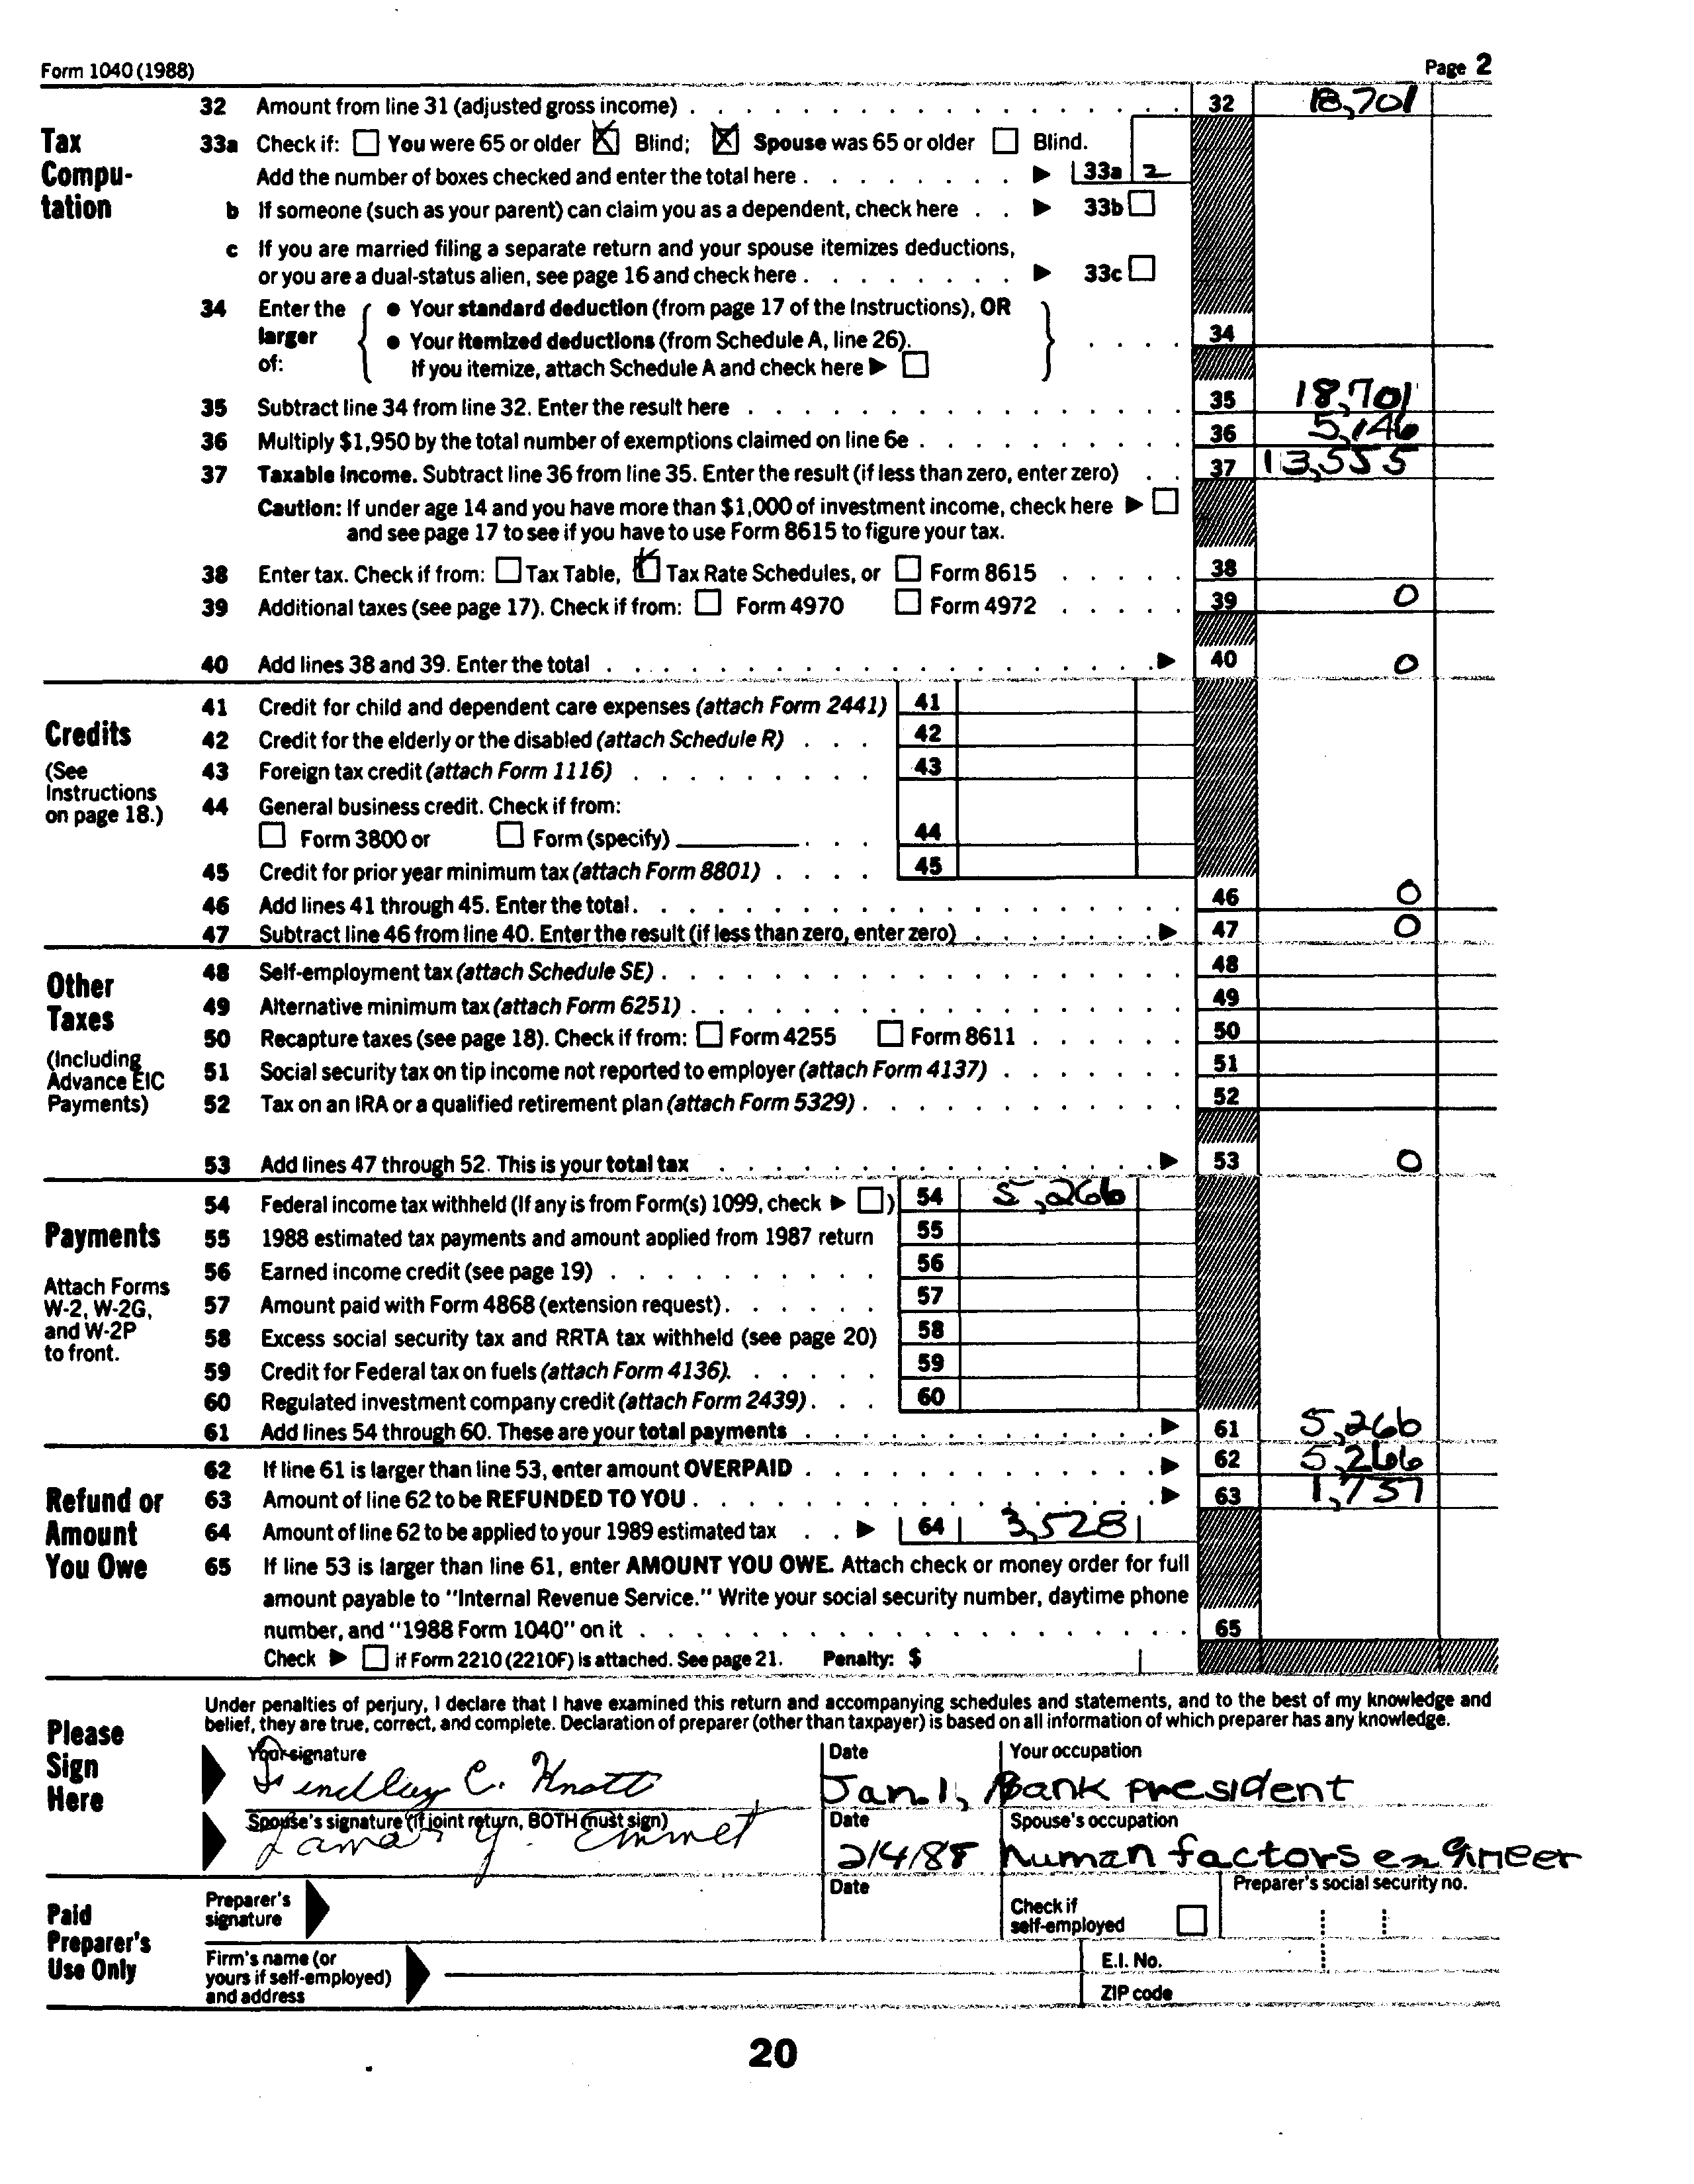 Form 1040 (1988) Page 2
Tax Compu-tation
32 Amount from line 31 (adjusted gross income) 32 18,701
33a Check if: You were 65 or older Blind; Spouse was 65 or older Blind.
Add the number of boxes checked and enter the total here 33a 2
b If someone (such as your parent) can claim you as a dependent, check here 33b
c If you are married filing a separate return and your spouse itemizes deductions,
or you are a dual-status alien, see page 16 and check here 33c
34 Enter the larger of:
• Your standard deduction (from page 17 of the Instructions), OR
• Your itemized deductions (from Schedule A, line 26). 34
If you itemize, attach Schedule A and check here
35 Subtract line 34 from line 32. Enter the result here 35 18,701
36 Multiply $1,950 by the total number of exemptions claimed on line 6e 36 5,146
37 Taxable income. Subtract line 36 from line 35. Enter the result (if less than zero, enter zero) 37 13,555
Caution: If under age 14 and you have more than $1,000 of investment income, check here
and see page 17 to see if you have to use Form 8615 to figure your tax.
38 Enter tax. Check if from: Tax Table, Tax Rate Schedules, or Form 8615 38
39 Additional taxes (see page 17). Check if from: Form 4970 Form 4972 39 0
40 Add lines 38 and 39. Enter the total 40 0
Credits
(See Instructions on page 18.)
41 Credit for child and dependent care expenses (attach Form 2441) 41
42 Credit for the elderly or the disabled (attach Schedule R) 42
43 Foreign tax credit (attach Form 1116) 43
44 General business credit. Check if from:
Form 3800 or Form (specify) 44
45 Credit for prior year minimum tax (attach Form 8801) 45
46 Add lines 41 through 45. Enter the total. 46 0
47 Subtract line 46 from line 40. Enter the result (if less than zero, enter zero) 47 0
Other Taxes
(Including Advance EIC Payments)
48 Self-employment tax (attach Schedule SE) 48
49 Alternative minimum tax (attach Form 6251) 49
50 Recapture taxes (see page 18). Check if from: Form 4255 Form 8611 50
51 Social security tax on tip income not reported to employer (attach Form 4137) 51
52 Tax on an IRA or a qualified retirement plan (attach Form 5329) 52
53 Add lines 47 through 52. This is your total tax 53 0
Payments
Attach Forms W-2, W-2G, and W-2P to front.
54 Federal income tax withheld (If any is from Form(s) 1099, check ) 54 5,266
55 1988 estimated tax payments and amount applied from 1987 return 55
56 Earned income credit (see page 19) 56
57 Amount paid with Form 4868 (extension request) 57
58 Excess social security tax and RRTA tax withheld (see page 20) 58
59 Credit for Federal tax on fuels (attach Form 4136). 59
60 Regulated investment company credit (attach Form 2439) 60
61 Add lines 54 through 60. These are your total payments 61 5,266
Refund or Amount You Owe
62 If line 61 is larger than line 53, enter amount OVERPAID 62 5,266
63 Amount of line 62 to be REFUNDED TO YOU 63 1,737
64 Amount of line 62 to be applied to your 1989 estimated tax 64 3,528
65 If line 53 is larger than line 61, enter AMOUNT YOU OWE. Attach check or money order for full
amount payable to "Internal Revenue Service." Write your social security number, daytime phone
number, and "1988 Form 1040" on it 65
Check if Form 2210 (2210F) is attached. See page 21. Penalty: $
Please Sign Here
Under penalties of perjury, I declare that I have examined this return and accompanying schedules and statements, and to the best of my knowledge and
belief, they are true, correct, and complete. Declaration of preparer (other than taxpayer) is based on all information of which preparer has any knowledge.
Your signature Date Your occupation
C. Knott Jan. 1, Bank president
Spouse's signature (if joint return, BOTH must sign) Date Spouse's occupation
Y. Emmet 2/4/88 human factors engineer
Paid Preparer's Use Only
Preparer's signature Date Check if self-employed Preparer's social security no.
Firm's name (or yours if self-employed) and address E.I. No.
ZIP code
20